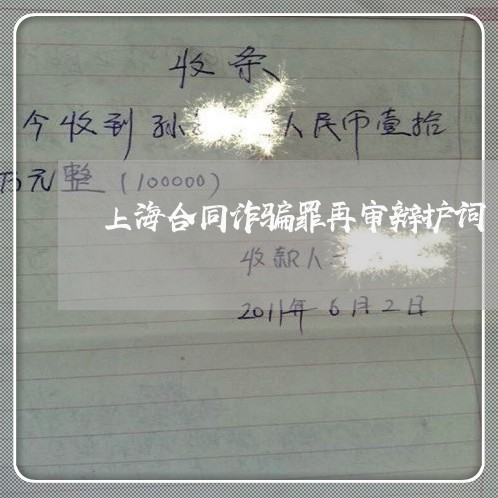 收条
今收到孙 人民币壹拾
万元整(100000)
上海合同诈骗罪再审辩护词
收款人
2011年6月2日